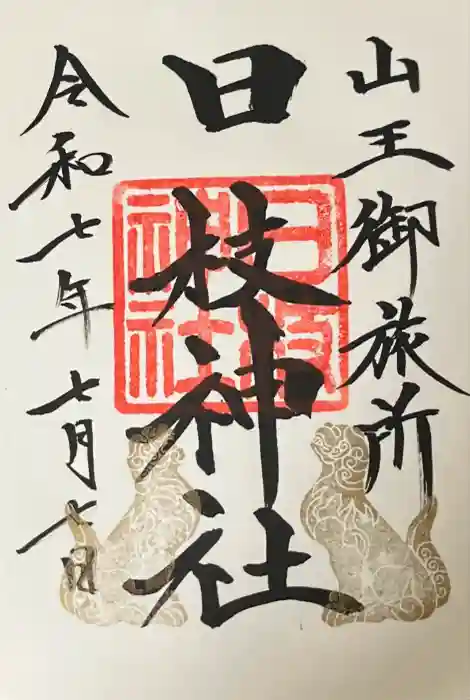 山王御旅所
日枝神社
日枝神社
令和七年七月七日